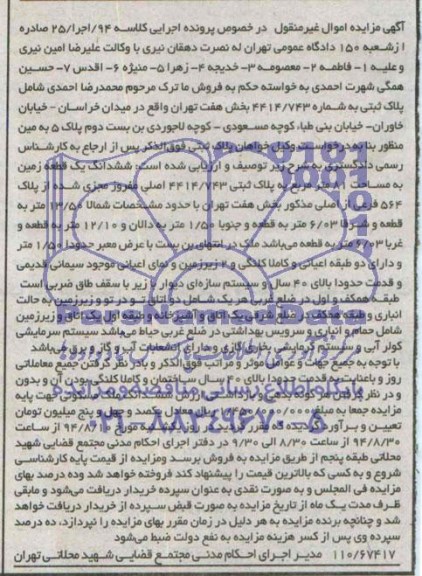 آگهی مزایده اموال غیرمنقول در خصوص پرونده اجرایی کلاسه ۹۴/اجرا/۲۵ صادره
از شعبه ۱۵۰ دادگاه عمومی تهران له نصرت دهقان نیری با وکالت علیرضا امین نیری
و علیه ۱- فاطمه ۲- معصومه ۳- خدیجه ۴- زهرا ۵- منیژه ۶- اقدس ۷- حسین
همگی شهرت احمدی به خواسته حکم به فروش ما ترک مرحوم محمدرضا احمدی شامل
پلاک ثبتی به شماره ۴۴۱۴/۷۴۳ بخش هفت تهران واقع در میدان خراسان - خیابان
خاوران- خیابان بنی طبا، کوچه مسعودی - کوچه لاجوردی بن بست دوم پلاک ۵ به مین
منظور بنا به درخواست وکیل خواهان پلاک ثبتی فوق الذکر پس از ارجاع به کارشناس
رسمی دادگستری به شرح زیر توصیف و ارزیابی شده است: ششدانگ یک قطعه زمین
به مساحت ۸۱ متر مربع به پلاک ثبتی ۴۴۱۴/۷۴۳ اصلی مفروز مجزی شده از پلاک
۵۶۴ فرعی از اصلی مذکور بخش هفت تهران با حدود مشخصات شمالا ۱۳/۵۰ متر به
قطعه و شرقا ۶/۰۳ متر به قطعه و جنوبا ۱/۵۰ متر به دالان و ۱۲/۱۰ متر به قطعه و
غربا ۶/۰۳ متر به قطعه می‌باشد ملک در انتهای بن بست با عرض معبر حدودا ۱/۵۰ متر
و دارای دو طبقه اعیانی و کاملا کلنگی و ۲ زیرزمین و نمای اعیانی موجود سیمانی قدیمی
و قدمت حدودا بالای ۴۰ سال و سیستم سازه‌ای دیوار با زیر با سقف طاق ضربی است
طبقه همکف و اول در ضلع غربی هر یک شامل دو اتاق تو در تو و زیرزمین به حالت
انباری و طبقه همکف در ضلع شرقی یک اتاق و آشپزخانه و طبقه اول یک اتاق و زیرزمین
شامل حمام و انباری و سرویس بهداشتی در ضلع غربی حیاط می‌باشد سیستم سرمایشی
کولر آبی و سیستم گرمایشی بخاری گازی و دارای انشعابات آب و گاز و برق می‌باشد
با توجه به جمیع جهات و عوامل موثر و مراتب فوق الذکر و با در نظر گرفتن جمیع معاملاتی
روز و باعنایت به قدمت حدودا بالای ۴۰ سال ساختمان و کاملا کلنگی بودن آن و بدون
و در نظر گرفتن هر گونه بدهی و بازداشت ارزش ششدانگ ملک مسکونی جهت پایه
مزایده جمعا به مبلغ ریال معادل یکصد و چهل و پنج میلیون تومان
تعیین و برآورد گردیده که مقرر گردید در روز شنبه مورخ ۹۴/۸/۳۰ از ساعت
۹۴/۸/۳۰ از ساعت ۸/۳۰ الی ۹/۳۰ در دفتر اجرای احکام مدنی مجتمع قضایی شهید
محلاتی طبقه پنجم از طریق مزایده به فروش برسد ومزایده از قیمت پایه کارشناسی
شروع و به کسی که بالاترین قیمت را پیشنهاد کند فروخته خواهد شد وده درصد بهای
مزایده فی المجلس و به صورت نقدی به عنوان سپرده خریدار دریافت می‌شود و مابقی
ظرف مدت یک ماه از تاریخ مزایده به صورت قبض سپرده از خریدار دریافت خواهد
شد و چنانچه برنده مزایده به هر دلیل در زمان مقرر بهای مزایده را نپردازد، ده درصد
سپرده وی پس از کسر هزینه مزایده به نفع دولت ضبط می‌شود
۱۱۰/۶۷۴۱۷ مدیر اجرای احکام مدنی مجتمع قضایی شهید محلاتی تهران